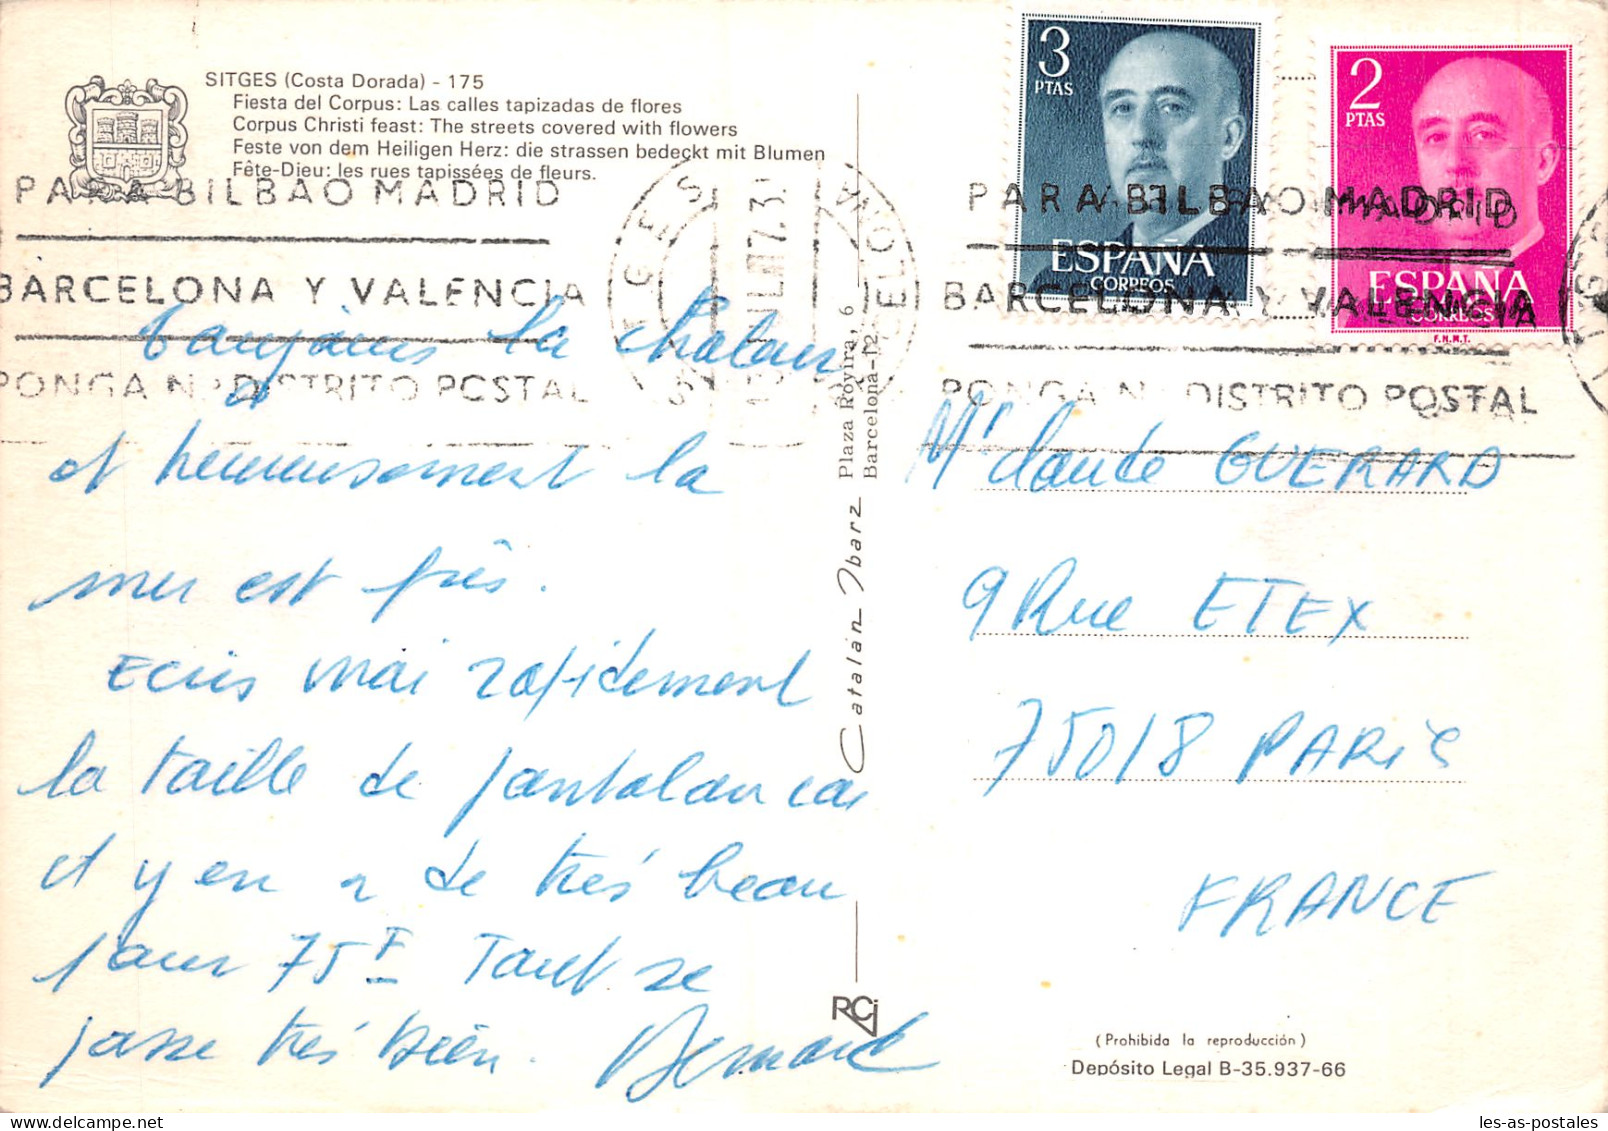 SITGES (Costa Dorada) - 175
Fiesta del Corpus: Las calles tapizadas de flores
Corpus Christi feast: The streets covered with flowers
Feste von dem Heiligen Herz: die strassen bedeckt mit Blumen
Fête-Dieu: les rues tapissées de fleurs.
PARA BILBAO MADRID
BARCELONA Y VALENCIA
PONGA N.º DISTRITO POSTAL
SITGES
BARCELONA
3
PTAS
ESPAÑA
CORREOS
2
PTAS
ESPAÑA
CORREOS
F.N.M.T.
PARA BILBAO MADRID
BARCELONA Y VALENCIA
PONGA N.º DISTRITO POSTAL
Toujours la chaleur
et heureusement la
mer est près.
Ecris moi rapidement
la taille de pantalon car
il y en a de très beau
pour 75F Tout se
passe très bien. Bernard
Catalán Ibarz
Plaza Rovira, 6
Barcelona-12
RCI
Mr Claude GUERARD
9 Rue ETEX
75018 PARIS
FRANCE
(Prohibida la reproducción)
Depósito Legal B-35.937-66
les-as-postales